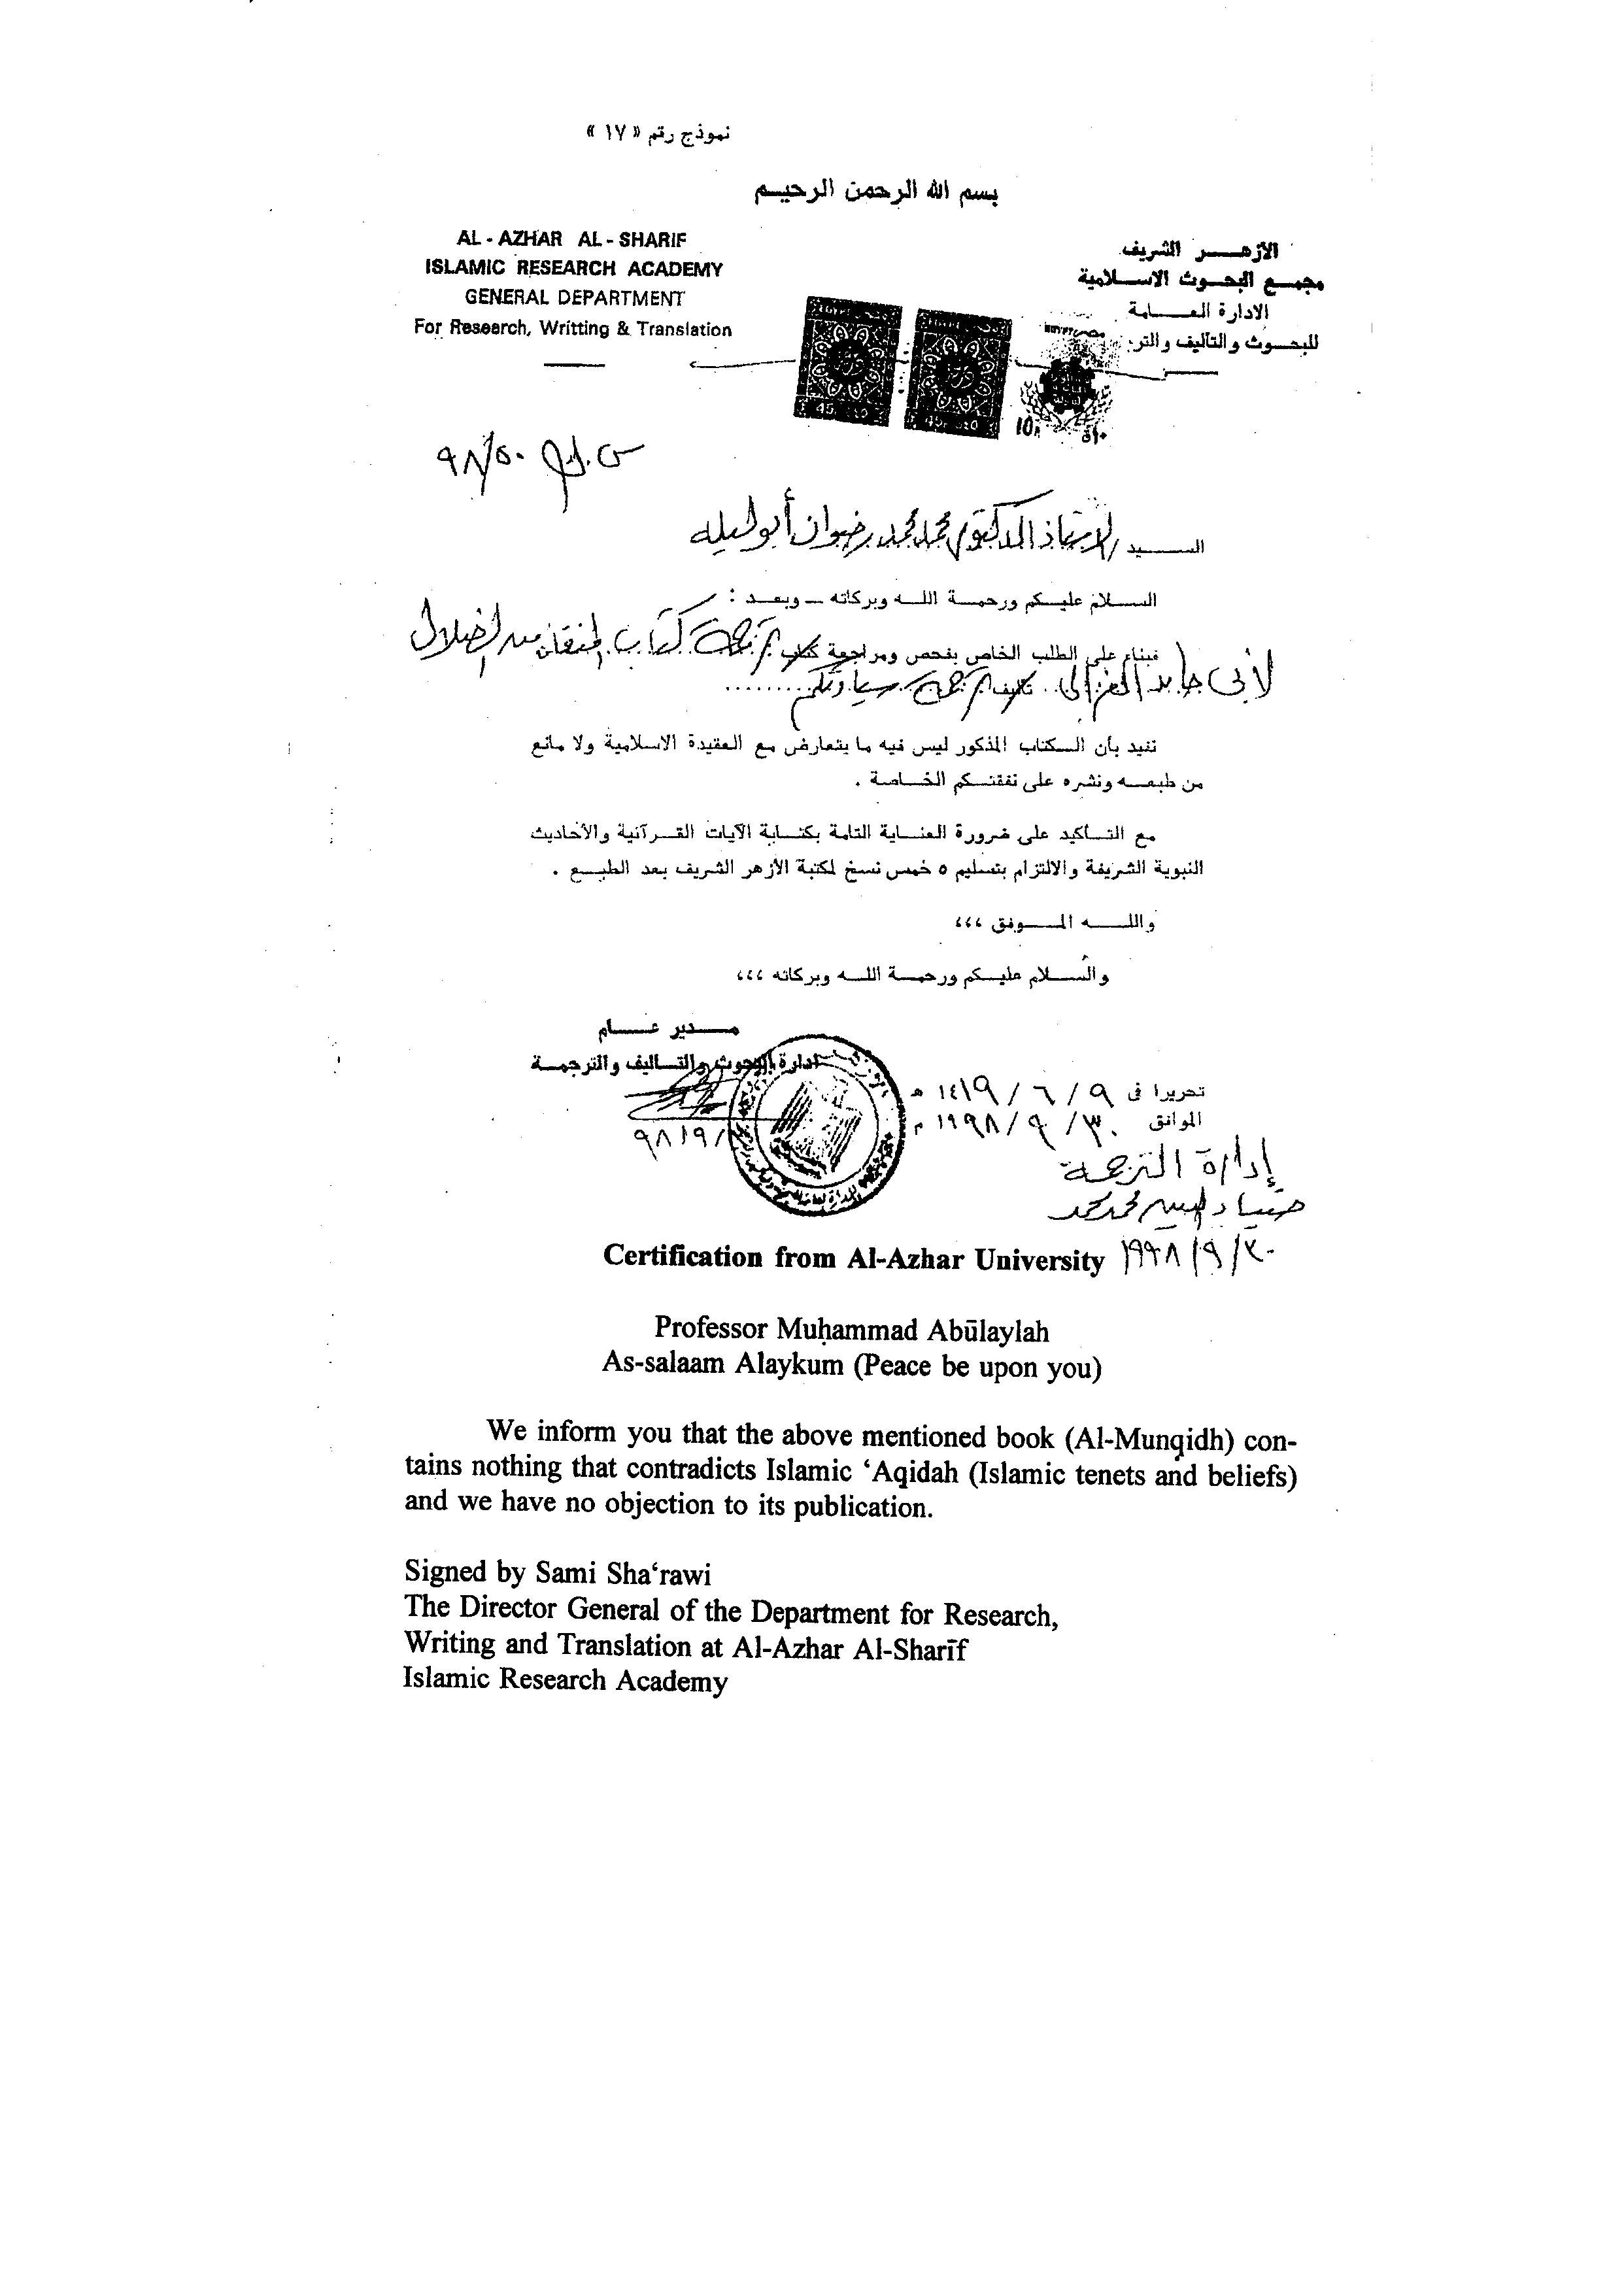 نموذج رقم « ١٧ »
بسم الله الرحمن الرحيم
AL - AZHAR AL - SHARIF
ISLAMIC RESEARCH ACADEMY
GENERAL DEPARTMENT
For Research, Writting & Translation
الازهر الشريف
مجمع البحوث الاسلامية
الادارة العامة
للبحوث والتأليف والتر
٩٨/٥٠
السيد / الأستاذ الدكتور محمد محمد رضوان أبو ليله
السلام عليكم ورحمة الله وبركاته — وبعد :
فبناء على الطلب الخاص بفحص ومراجعة كتاب ترجمة كتاب المنقذ من الضلال
لأبى حامد الغزالى تأليف ترجمة سيادتكم ........
نفيد بأن الكتاب المذكور ليس فيه ما يتعارض مع العقيدة الاسلامية ولا مانع
من طبعه ونشره على نفقتكم الخاصة .
مع التأكيد على ضرورة العناية التامة بكتابة الآيات القرآنية والأحاديث
النبوية الشريفة والالتزام بتسليم ٥ خمس نسخ لمكتبة الأزهر الشريف بعد الطبع .
والله الموفق ،،،
والسلام عليكم ورحمة الله وبركاته ،،،
مدير عام
ادارة البحوث والتأليف والترجمة
تحريرا فى ٩ / ٦ / ١٤١٩ هـ
الموافق ٣٠ / ٩ / ١٩٩٨ م
إدارة الترجمة
١٩٩٨/٩/٣٠
Certification from Al-Azhar University
Professor Muḥammad Abūlaylah
As-salaam Alaykum (Peace be upon you)
We inform you that the above mentioned book (Al-Munqidh) con-
tains nothing that contradicts Islamic ‘Aqidah (Islamic tenets and beliefs)
and we have no objection to its publication.
Signed by Sami Sha‘rawi
The Director General of the Department for Research,
Writing and Translation at Al-Azhar Al-Sharīf
Islamic Research Academy